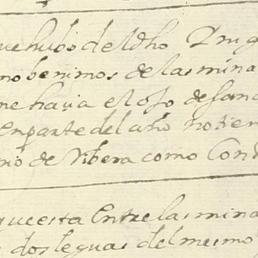 que hubo del dho Dn
no benimos de las mina
ne hacia el ojo de san
En parte del año no tien
rio de Ribera como Con
puesta Entre las mina
dos leguas del mesmo